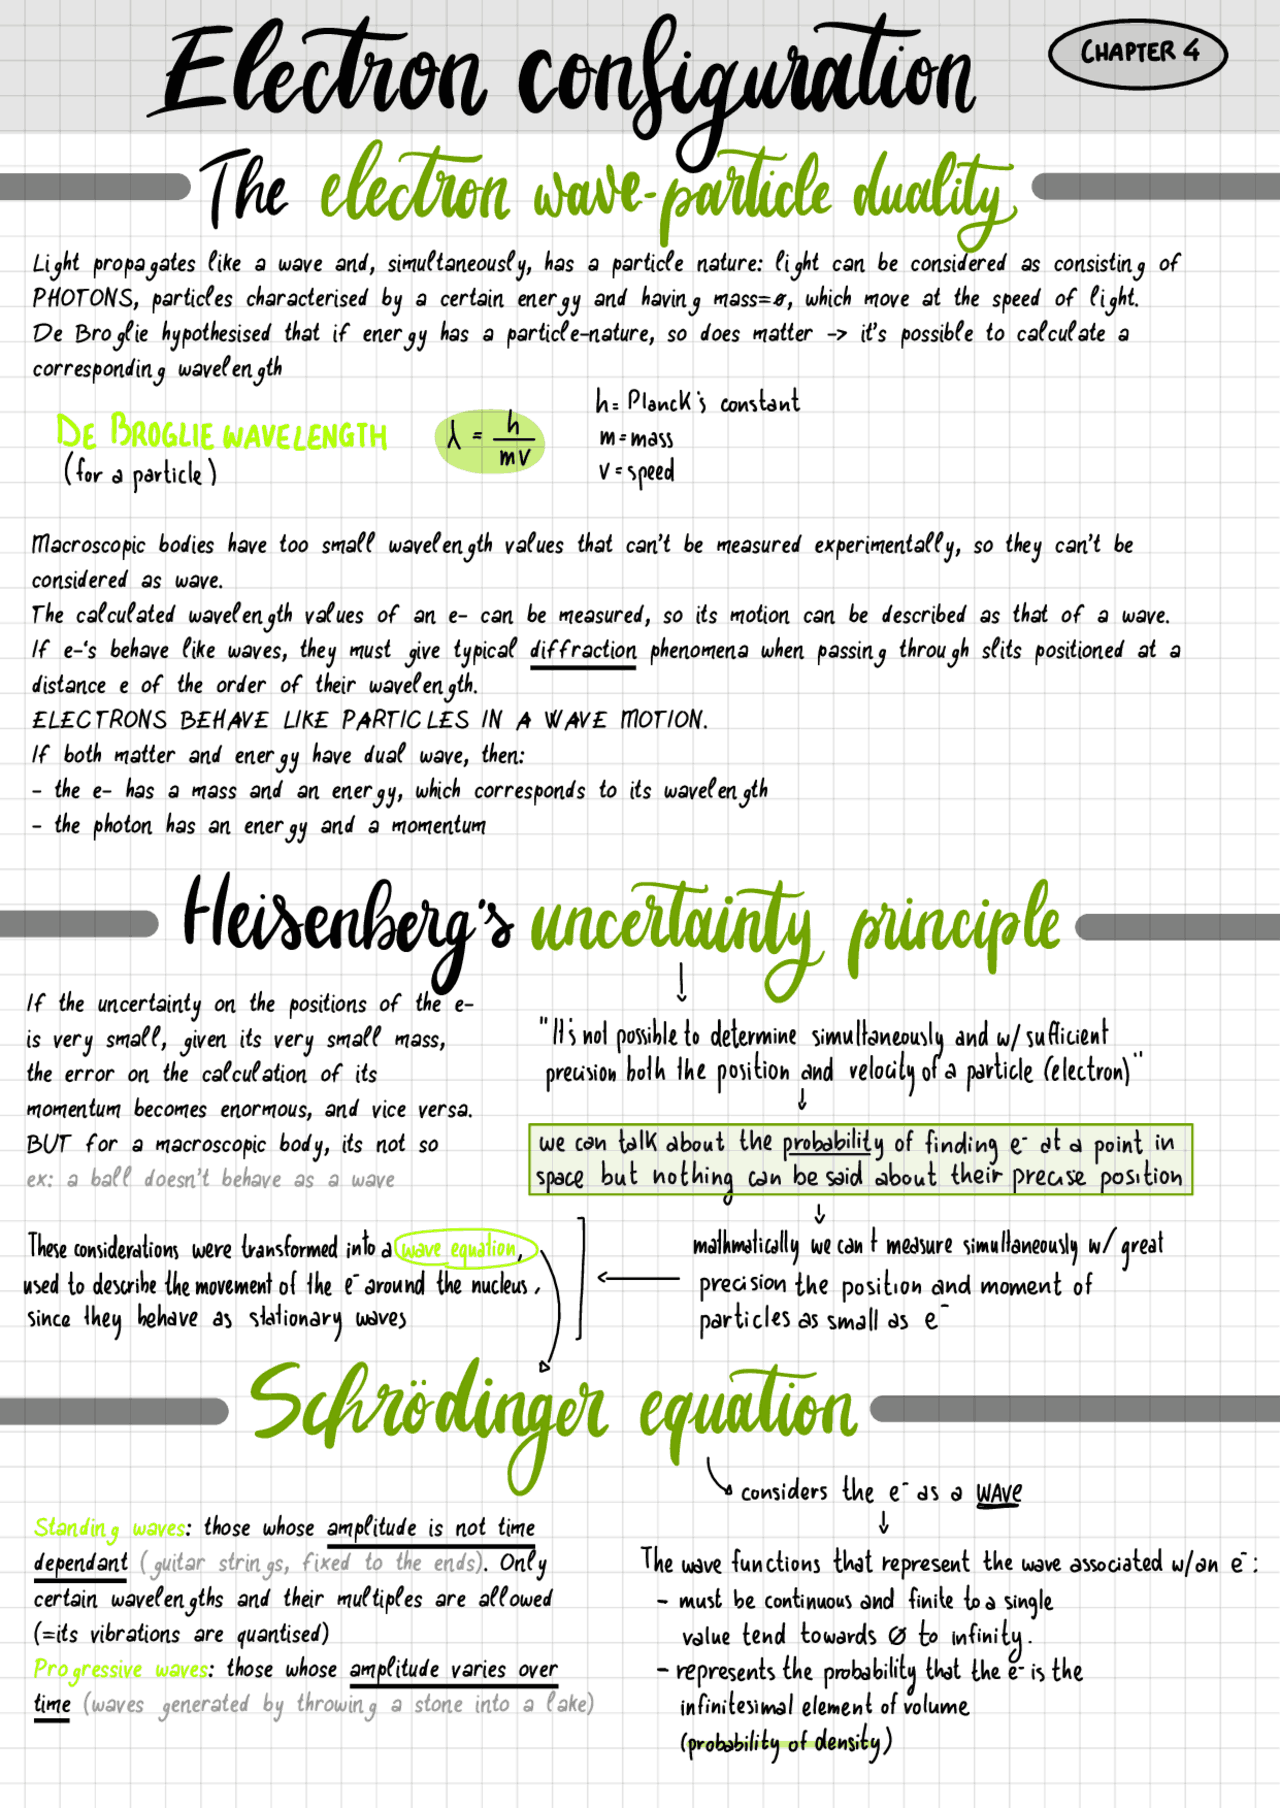 Electron configuration
CHAPTER 4
The electron wave-particle duality
Light propagates like a wave and, simultaneously, has a particle nature: light can be considered as consisting of
PHOTONS, particles characterised by a certain energy and having mass=ø, which move at the speed of light.
De Broglie hypothesised that if energy has a particle-nature, so does matter -> it's possible to calculate a
corresponding wavelength
DE BROGLIE WAVELENGTH
(for a particle)
λ = h / mv
h = Planck's constant
m = mass
v = speed
Macroscopic bodies have too small wavelength values that can't be measured experimentally, so they can't be
considered as wave.
The calculated wavelength values of an e- can be measured, so its motion can be described as that of a wave.
If e-'s behave like waves, they must give typical diffraction phenomena when passing through slits positioned at a
distance e of the order of their wavelength.
ELECTRONS BEHAVE LIKE PARTICLES IN A WAVE MOTION.
If both matter and energy have dual wave, then:
- the e- has a mass and an energy, which corresponds to its wavelength
- the photon has an energy and a momentum
Heisenberg's uncertainty principle
If the uncertainty on the positions of the e-
is very small, given its very small mass,
the error on the calculation of its
momentum becomes enormous, and vice versa.
BUT for a macroscopic body, its not so
ex: a ball doesn't behave as a wave
"It's not possible to determine simultaneously and w/ sufficient
precision both the position and velocity of a particle (electron)"
we can talk about the probability of finding e⁻ at a point in
space but nothing can be said about their precise position
mathmatically we can't measure simultaneously w/ great
precision the position and moment of
particles as small as e⁻
These considerations were transformed into a wave equation,
used to describe the movement of the e⁻ around the nucleus,
since they behave as stationary waves
Schrödinger equation
considers the e⁻ as a WAVE
Standing waves: those whose amplitude is not time
dependant (guitar strings, fixed to the ends). Only
certain wavelengths and their multiples are allowed
(=its vibrations are quantised)
Progressive waves: those whose amplitude varies over
time (waves generated by throwing a stone into a lake)
The wave functions that represent the wave associated w/an e⁻:
- must be continuous and finite to a single
value tend towards Ø to infinity.
- represents the probability that the e⁻ is the
infinitesimal element of volume
(probability of density)